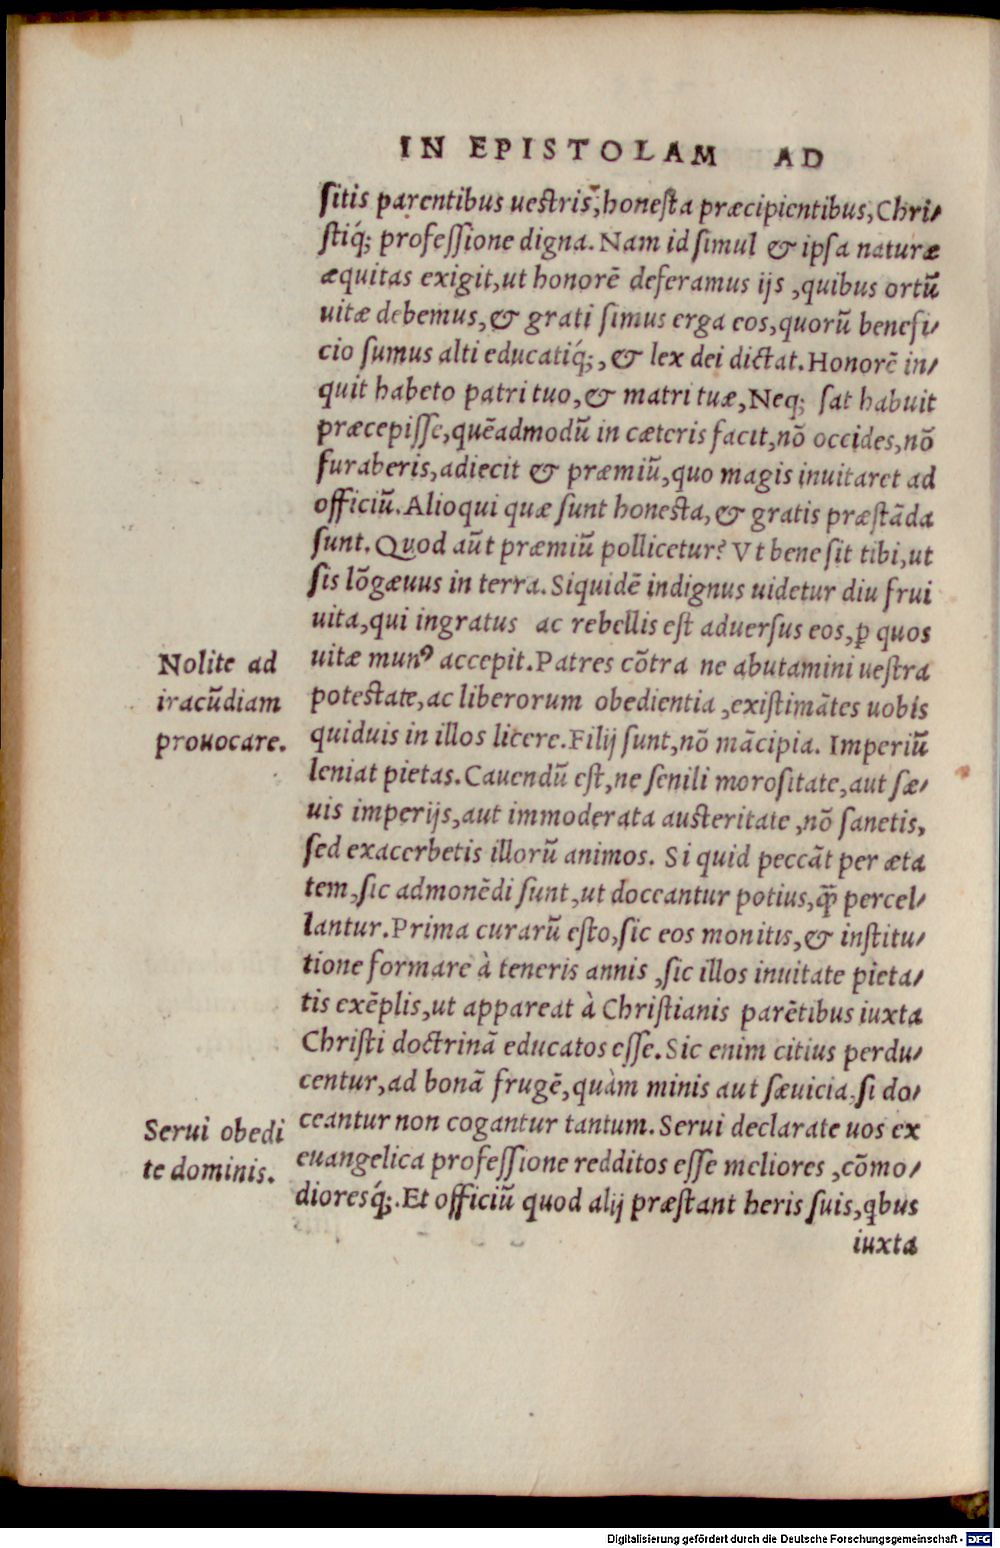 IN EPISTOLAM AD
sitis parentibus uestris, honesta præcipientibus, Chri/
stiq́; professione digna. Nam id simul & ipsa naturæ
æquitas exigit, ut honorē deferamus ijs, quibus ortū
uitæ debemus, & grati simus erga eos, quorū benefi/
cio sumus alti educatiq́;, & lex dei dictat. Honorē in/
quit habeto patri tuo, & matri tuæ, Neq; sat habuit
præcepisse, quēadmodū in cæteris facit, nō occides, nō
furaberis, adiecit & præmiū, quo magis inuitaret ad
officiū. Alioqui quæ sunt honesta, & gratis præstāda
sunt. Quod aūt præmiū pollicetur? Vt bene sit tibi, ut
sis lōgæuus in terra. Siquidē indignus uidetur diu frui
uita, qui ingratus ac rebellis est aduersus eos, ꝑ quos
uitæ munꝰ accepit. Patres cōtra ne abutamini uestra
potestate, ac liberorum obedientia, existimātes uobis
quiduis in illos licere. Filij sunt, nō mācipia. Imperiū
leniat pietas. Cauendū est, ne senili morositate, aut sæ/
uis imperijs, aut immoderata austeritate, nō sanetis,
sed exacerbetis illorū animos. Si quid peccāt per æta
tem, sic admonēdi sunt, ut doceantur potius, q̄̃ percel/
lantur. Prima curarū esto, sic eos monitis, & institu/
tione formare à teneris annis, sic illos inuitate pieta/
tis exēplis, ut appareat à Christianis parētibus iuxta
Christi doctrinā educatos esse. Sic enim citius perdu/
centur, ad bonā frugē, quàm minis aut sæuicia, si do/
ceantur non cogantur tantum. Serui declarate uos ex
euangelica professione redditos esse meliores, cōmo/
dioresq́;. Et officiū quod alij præstant heris suis, qbus
iuxta
Nolite ad
iracūdiam
prouocare.
Serui obedi
te dominis.
Digitalisierung gefördert durch die Deutsche Forschungsgemeinschaft - DFG